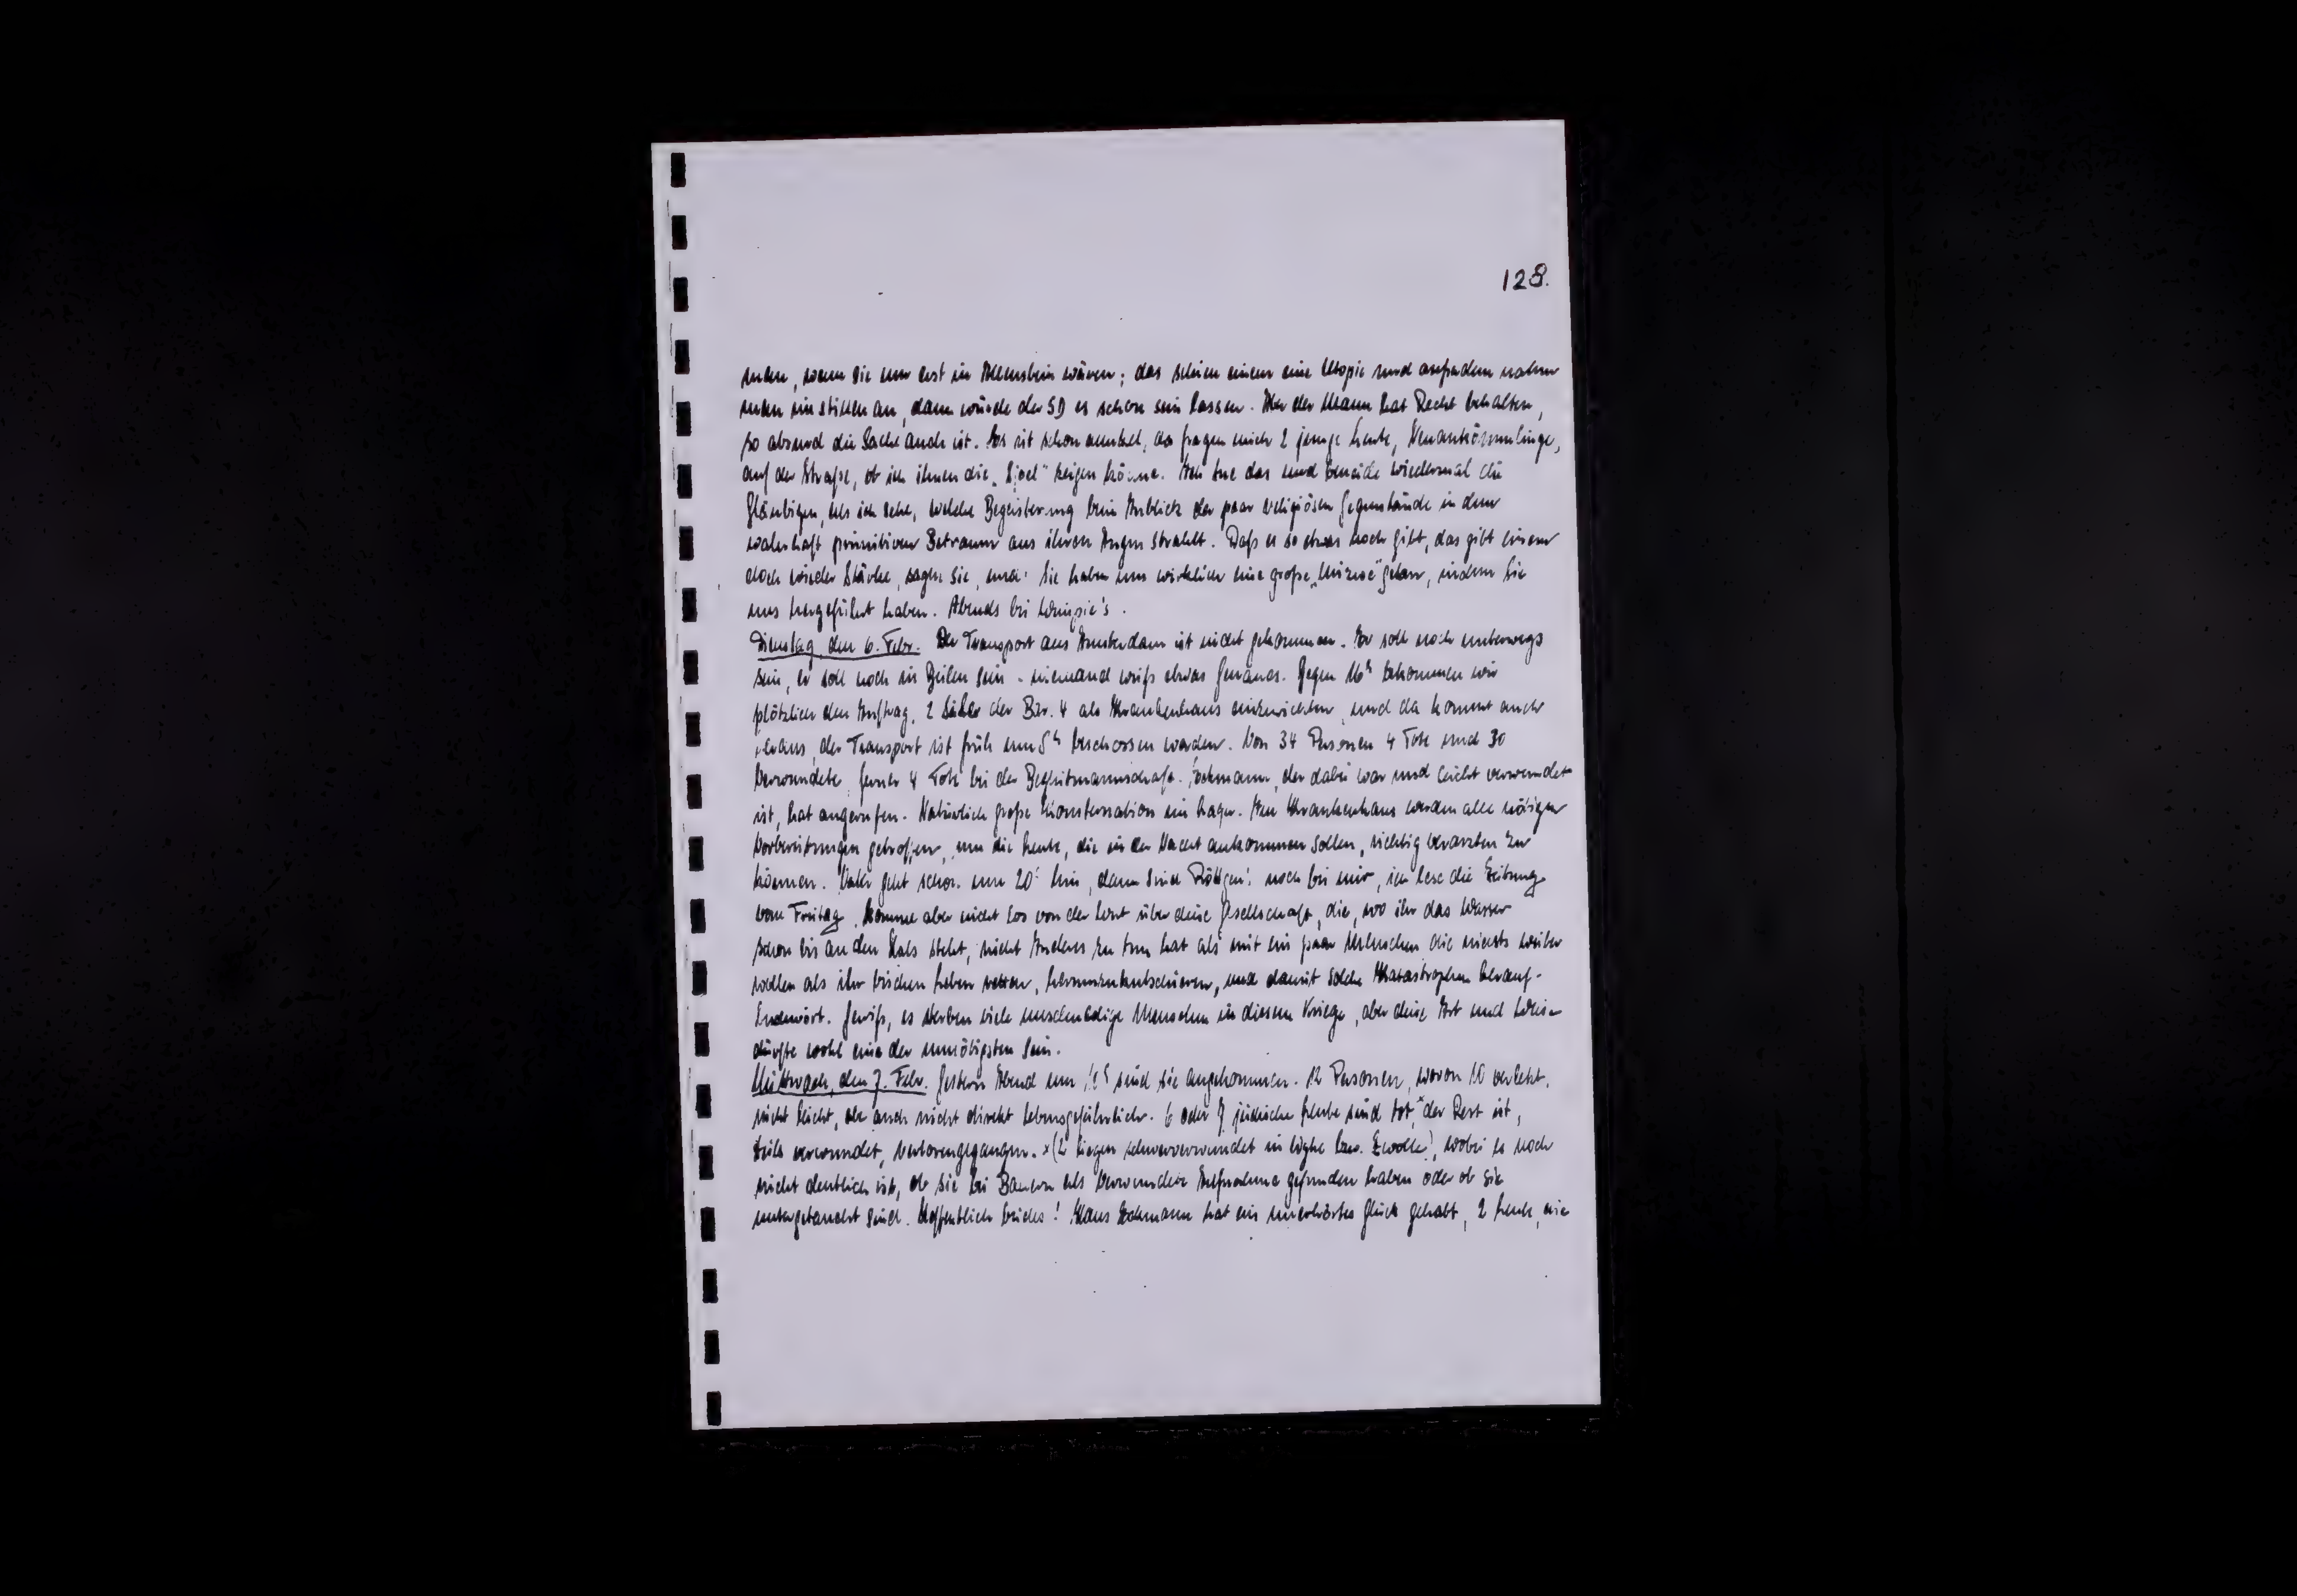 128.
men, wenn sie nur erst in Allenstein wären; das schien einem eine Utopie und außerdem nahm
man im stillen an, dann würde der SD es schon sein lassen. Aber der Mann hat Recht behalten,
so absurd die Sache auch ist. Es ist schon dunkel, da fragen mich 2 junge Leute, Neuankömmlinge,
auf der Straße, ob ich ihnen die „Sjoel" zeigen könne. Ich tue das und beneide wiedermal die
Gläubigen, als ich sehe, welche Begeisterung beim Anblick der paar religiösen Gegenstände in dem
wahrhaft primitiven Betraum aus ihren Augen strahlt. Daß es so etwas noch gibt, das gibt einem
doch wieder Stärke, sagen sie, und: Sie haben uns wirklich eine große „Mizwe" getan, indem Sie
uns hergeführt haben. Abends bei
Dienstag, den 6. Febr. Der Transport aus Amsterdam ist nicht gekommen. Er soll noch unterwegs
sein, er soll noch in Beilen sein - niemand weiß etwas Genaues. Gegen 16ʰ bekommen wir
plötzlich den Auftrag, 2 Säle der Bar. 4 als Krankenhaus einzurichten, und da kommt auch
heraus, der Transport ist früh um 5ʰ beschossen worden. Von 34 Personen 4 Tote und 30
Verwundete, ferner 4 Tote bei der Begleitmannschaft. Eckmann, der dabei war und leicht verwundet
ist, hat angerufen. Natürlich große Konsternation im Lager. Im Krankenhaus werden alle nötigen
Vorbereitungen getroffen, um die Leute, die in der Nacht ankommen sollen, richtig verarzten zu
können. Vater geht schon um 20ʰ hin, dann sind Röttgens noch bei mir, ich lese die Zeitung
vom Freitag, komme aber nicht los von der Wut über diese Gesellschaft, die, wo ihr das Wasser
schon bis an den Hals steht, nicht Anderes zu tun hat als mit ein paar Menschen die nichts weiter
wollen als ihr bischen Leben retten, herumzukutschieren, und damit solche Katastrophen herauf-
beschwört. Gewiß, es sterben viele unschuldige Menschen in diesem Kriege, aber diese Art und Weise
dürfte wohl eine der unnötigsten sein.
Mittwoch, den 7. Febr. Gestern Abend um sind sie angekommen. 12 Personen, wovon 10 verletzt,
nicht leicht, aber auch nicht direkt lebensgefährlich. 6 oder 7 jüdische Leute sind tot,ˣ der Rest ist,
teils verwundet, verlorengegangen. x(2 liegen schwerverwundet in bzw. Zwolle), wobei es noch
nicht deutlich ist, ob sie bei Bauern als Verwundete Aufnahme gefunden haben oder ob sie
untergetaucht sind. Hoffentlich beides! Klaus Eckmann hat ein unerhörtes Glück gehabt, 2 Leute, die